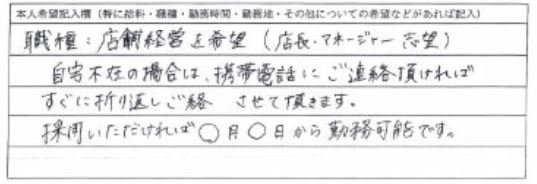 本人希望記入欄（特に給料・職種・勤務時間・勤務地・その他についての希望などがあれば記入）
職種：店舗経営を希望（店長・マネージャー志望）
自宅不在の場合は、携帯電話にご連絡頂ければ
すぐに折り返しご絡 させて頂きます。
採用いただければ〇月〇日から勤務可能です。